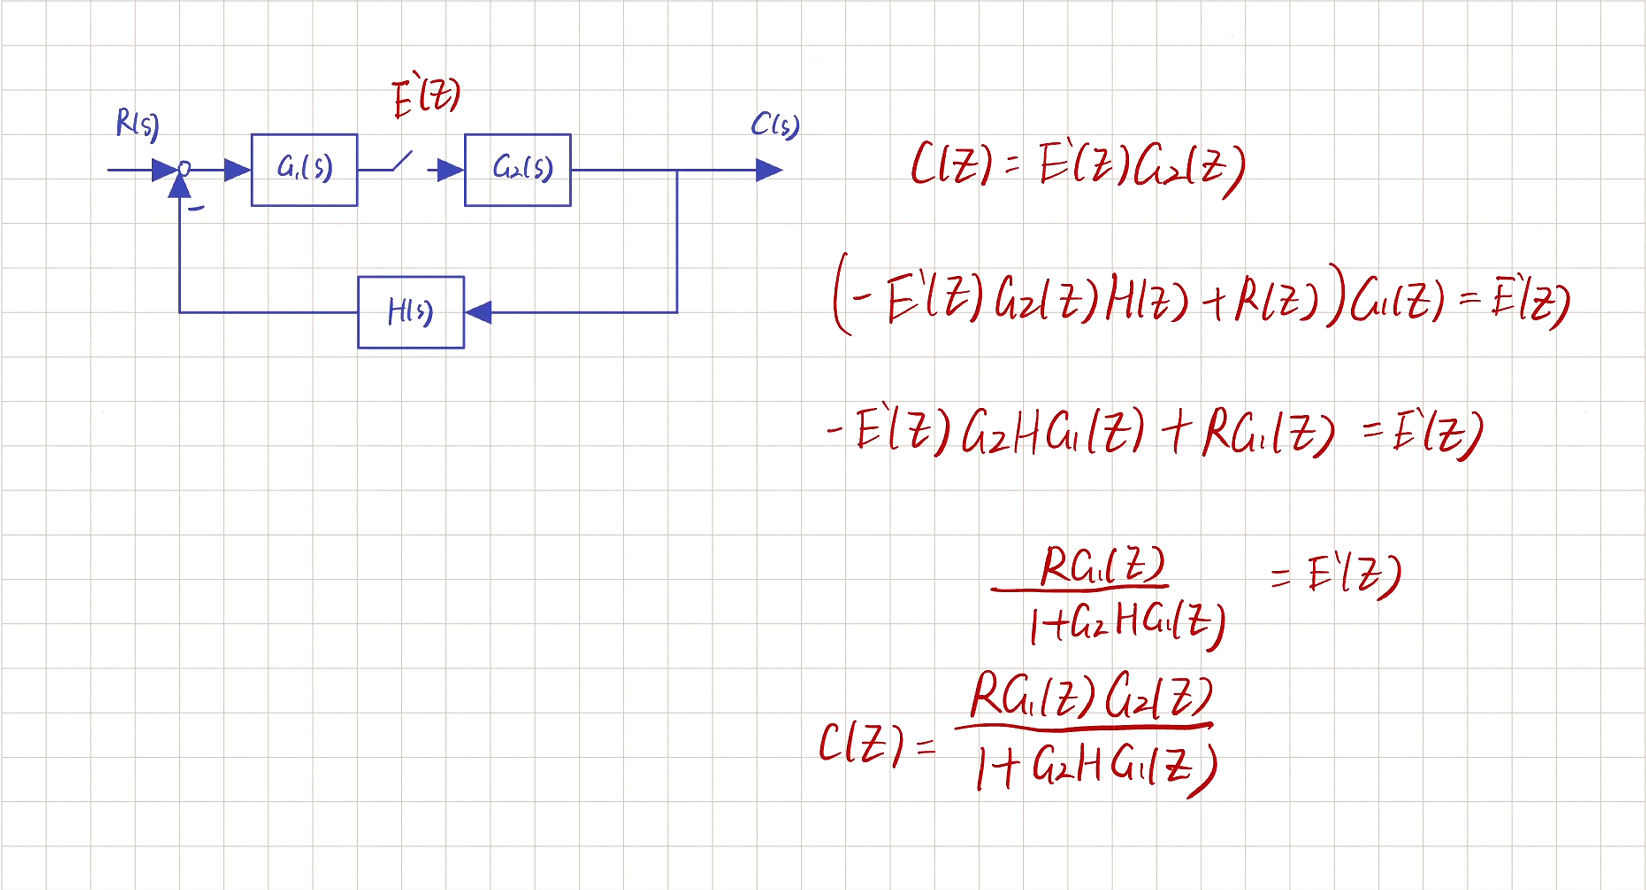 R(s)
E`(Z)
C(s)
G₁(s)
G₂(s)
-
H(s)
C(Z) = E`(Z)G₂(Z)
(-E`(Z)G₂(Z)H(Z)+R(Z))G₁(Z) = E`(Z)
-E`(Z)G₂HG₁(Z)+RG₁(Z) = E`(Z)
RG₁(Z)
= E`(Z)
1+G₂HG₁(Z)
RG₁(Z)G₂(Z)
C(Z) =
1+G₂HG₁(Z)